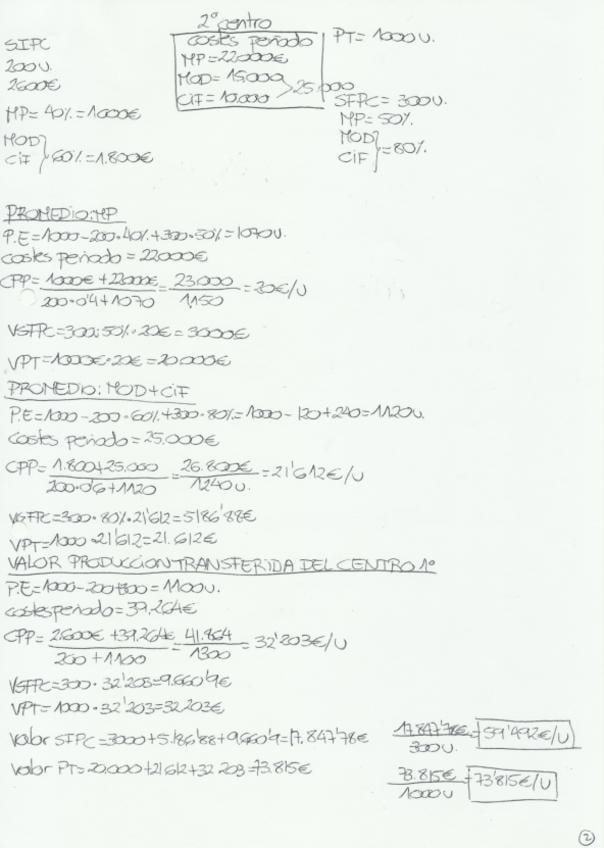 2º centro
SIPC
200 U.
2600€
MP = 40% = 1000€
MOD
CIF } 60% = 1.800€
costes periodo
MP = 22000€
MOD = 15,000
CIF = 10.000 > 25,000
PT = 1000 U.
SFPC = 300 U.
MP = 50%.
MOD
CIF } = 80%.
PROMEDIO: MP
P.E = 1000 - 200 · 40% + 300 · 50% = 1070 U.
Costes periodo = 22000€
CPP = 1000€ + 22000€ / 200 · 0'4 + 1070 = 23.000 / 1,150 = 20€/U
VSFPC = 300 · 50% · 20€ = 3000€
VPT = 1000€ · 20€ = 20.000€
PROMEDIO: MOD + CIF
P.E = 1000 - 200 · 60% + 300 · 80% = 1000 - 120 + 240 = 1120 U.
Costes periodo = 25.000€
CPP = 1.800 + 25.000 / 200 · 0'6 + 1120 = 26.800€ / 1240 U. = 21'612€/U
VSFPC = 300 · 80% · 21'612 = 5186'88€
VPT = 1000 · 21'612 = 21.612€
VALOR PRODUCCION TRANSFERIDA DEL CENTRO 1º
P.E = 1000 - 200 + 300 = 1100 U.
costes periodo = 39.264€
CPP = 2.600€ + 39.264€ / 200 + 1100 = 41.864 / 1300 = 32'203€/U
VSFPC = 300 · 32'203 = 9.660'9€
VPT = 1000 · 32'203 = 32203€
Valor SIPC = 3000 + 5.186'88 + 9.660'9 = 17.847'78€
17.847'78€ / 300 U. = 59'492€/U
Valor PT = 20.000 + 21612 + 32.203 = 73.815€
73.815€ / 1000 U = 73'815€/U
2